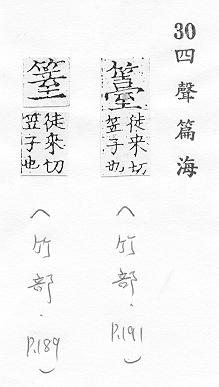 30四聲篇海
籉
徒來切
笠子也
(竹部.P.191)
徒來切
笠子也
(竹部.P.189)